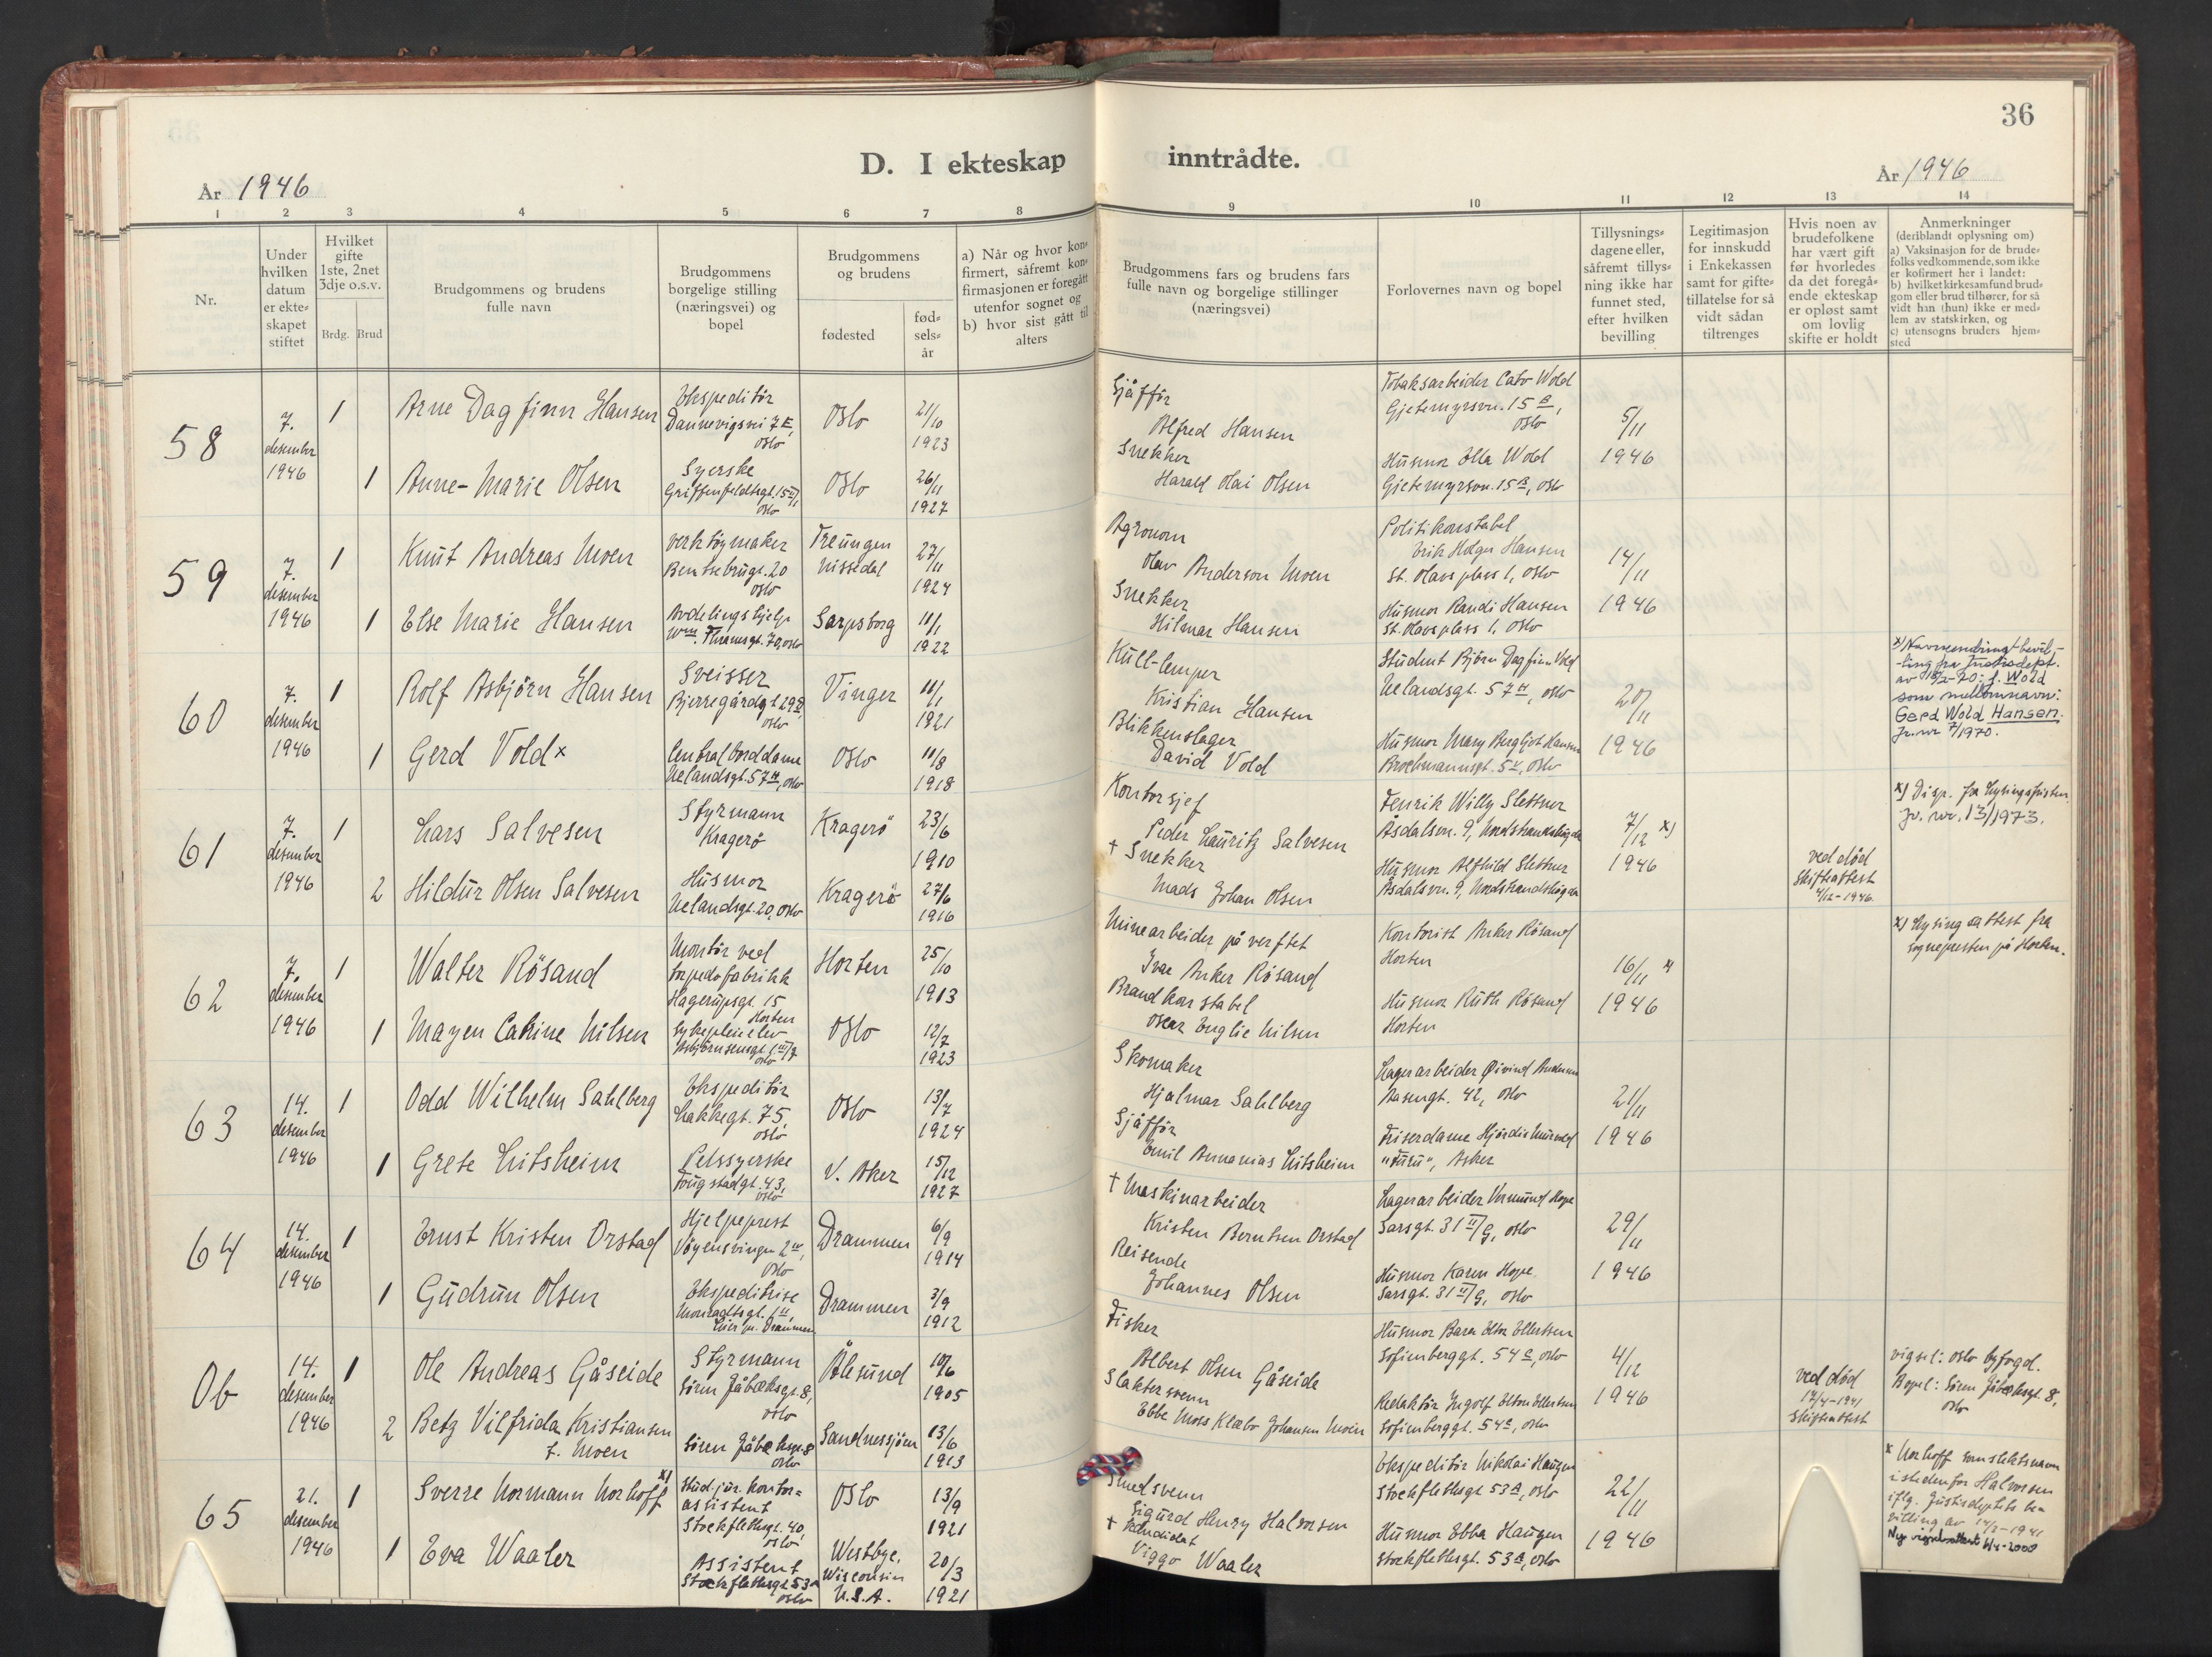 36
D. I ekteskap inntrådte.
År 1946
År 1946
1 2 3 4 5 6 7 8 9 10 11 12 13 14
Nr.
Under
hvilken
datum
er ekte=
skapet
stiftet
Hvilket
gifte
1ste, 2net
3dje o.s.v.
Brdg. Brud
Brudgommens og brudens
fulle navn
Brudgommens
borgelige stilling
(næringsvei) og
bopel
Brudgommens
og brudens
fødested
fød=
sels=
år
a) Når og hvor kon=
firmert, såfremt kon=
firmasjonen er foregått
utenfor sognet og
b) hvor sist gått til
alters
Brudgommens fars og brudens fars
fulle navn og borgelige stillinger
(næringsvei)
Forlovernes navn og bopel
Tillysnings=
dagene eller,
såfremt tillys=
ning ikke har
funnet sted,
efter hvilken
bevilling
Legitimasjon
for innskudd
i Enkekassen
samt for gifte=
tillatelse for så
vidt sådan
tiltrenges
Hvis noen av
brudefolkene
har vært gift
før hvorledes
da det foregå=
ende ekteskap
er opløst samt
om lovlig
skifte er holdt
Anmerkninger
(deriblandt oplysning om)
a) Vaksinasjon for de brude=
folks vedkommende, som ikke
er kofirmert her i landet:
b) hvilket kirkesamfund brud=
gom eller brud tilhører, for så
vidt han (hun) ikke er med=
lem av statskirken, og
c) utensogns bruders hjem=
sted
58
7.
desember
1946
1
Arne Dagfinn Hansen
Ekspeditör
Dannevigsvei 7 E,
Oslo
Oslo
21/10
1923
Sjåfför
Alfred Hansen
Tobaksarbeider Cato Wold
Gjetemyrsvn. 15 B,
Oslo
5/11
1946
1
Anne-Marie Olsen
Syerske
Griffenfeldtsgt. 15 II,
Oslo
Oslo
26/11
1927
Snekker
Harald Olai Olsen
Husmor Ella Wold
Gjetemyrsvn. 15 B, Oslo
59
7.
desember
1946
1
Knut Andreas Moen
Verktöymaker
Bentsebrugt. 20
Oslo
Treungen
Nissedal
27/11
1924
Agronom
Olav Anderson Moen
Politikonstabel
Erik Holger Hansen
St. Olavs plass 1, Oslo
14/11
1946
1
Else Marie Hansen
Avdelingshjelp
Wm. Thranesgt. 70, Oslo
Sarpsborg
11/1
1922
Snekker
Hilmar Hansen
Husmor Randi Hansen
St. Olavs plass 1, Oslo
60
7.
desember
1946
1
Rolf Asbjörn Hansen
Sveisser
Bjerregårdsgt. 29 B,
Oslo
Vinger
11/1
1921
Kull-lemper
Kristian Hansen
Student Björn Dagfinn Vold
Uelandsgt. 57 H, Oslo
20/11
1946
x) Navneendringsbevil-
-ling fra Justisdept.
av 18/2-70: f. Wold
som mellomnavn:
Gerd Wold Hansen.
Jr.nr 7/1970.
1
Gerd Vold x
Centralborddame
Uelandsgt. 57 H, Oslo
Oslo
11/8
1918
Blikkenslager
David Vold
Husmor Mary Bergljot Hansen
Brochmannsgt. 5 V, Oslo
61
7.
desember
1946
1
Lars Salvesen
Styrmann
Kragerø
Kragerö
23/6
1910
Kontorsjef
Peder Lauritz Salvesen
Fenrik Willy Slettner
Åsdalsvn. 9, Nordstrandshögda
7/12 x)
1946
x) Disp. fra lysingsfristen.
Jr. nr. 13/1973.
2
Hildur Olsen Salvesen
Husmor
Uelandsgt. 20, Oslo
Kragerö
27/6
1916
† Snekker
Mads Johan Olsen
Husmor Alfhild Slettner
Åsdalsvn. 9, Nordstrandshögda
ved död
Skifteattest
4/12-1946.
62
7.
desember
1946
1
Walter Rösand
Montör ved
torpedofabrikk
Hagerupsgt. 15
Horten
Horten
25/10
1913
Minearbeider på verftet
Ivar Anker Rösand
Kontorist Anker Rösand
Horten
16/11 x)
1946
x) Lysingsattest fra
sognepresten på Horten.
1
Mayen Catrine Nilsen
Sykepleieelev
Asbjörnsensgt. 1 III/7
Oslo
Oslo
12/7
1923
Brandkonstabel
Oscar Englie Nilsen
Husmor Ruth Rösand
Horten
63
14.
desember
1946
1
Odd Wilhelm Sahlberg
Ekspeditör
Lakkegt. 75,
Oslo
Oslo
13/7
1924
Skomaker
Hjalmar Sahlberg
Lagerarbeider Øivind Andersen
Aasengt. 42, Oslo
21/11
1946
1
Grete Litsheim
Pelssyerske
Fougstadgt. 43,
Oslo
V. Aker
15/12
1927
Sjåffør
Emil Annanias Litsheim
Friserdame Hjördis Murvold
"Furu", Asker
64
14.
desember
1946
1
Ernst Kristen Orstad
Hjelpeprest
Vöyensvingen 2 III,
Oslo
Drammen
6/9
1914
† Maskinarbeider
Kristen Berntsen Orstad
Lagerarbeider Vermund Hope
Sarsgt. 31 II/G, Oslo
29/11
1946
1
Gudrun Olsen
Ekspeditrise
Lier pr. Drammen
Drammen
3/9
1912
Reisende
Johannes Olsen
Husmor Karen Hope
Sarsgt. 31 II/G, Oslo
Ob
14.
desember
1946
1
Ole Andreas Gåseide
Styrmann
Sören Jåbæksgt. 8,
Oslo
Ålesund
10/6
1905
Fisker
Albert Olsen Gåseide
Husmor Bara Elton Ellertsen
Sofienberggt. 54 C, Oslo
4/12
1946
vigsel: Oslo byfogd.
Bopel: Sören Jåbæksgt. 8,
Oslo
2
Betzy Vilfrida Kristiansen
f. Moen
Sören Jåbæksgt. 8
Oslo
Sandnessjöen
13/6
1913
Slaktersvenn
Ebbe Moss Klæbo Johansen Moen
Redaktör Ingolf Elton Ellertsen
Sofienberggt. 54 C, Oslo
ved död
14/4-1941
Skifteattest
65
21.
desember
1946
1
Sverre Normann Norhoff x)
Stud. jur. kontor=
assistent
Stockflethsgt. 40,
Oslo
Oslo
13/9
1921
Smedsvenn
Sigurd Henry Halvorsen
Ekspeditör Nikolai Haugen
Stockflethsgt. 53 A, Oslo
22/11
1946
x Norhoff som slektsnavn
istedenfor Halvorsen
iflg. Justisdeptets be-
villing av 14/2-1941
Ny vigselsattest 4/4-2000
1
Eva Waaler
Assistent
Stockflethsgt. 53 A
Oslo
Westbye,
Wisconsin
U.S.A.
20/3
1921
† Kandidat
Viggo Waaler
Husmor Ebba Haugen
Stockflethsgt. 53 A, Oslo